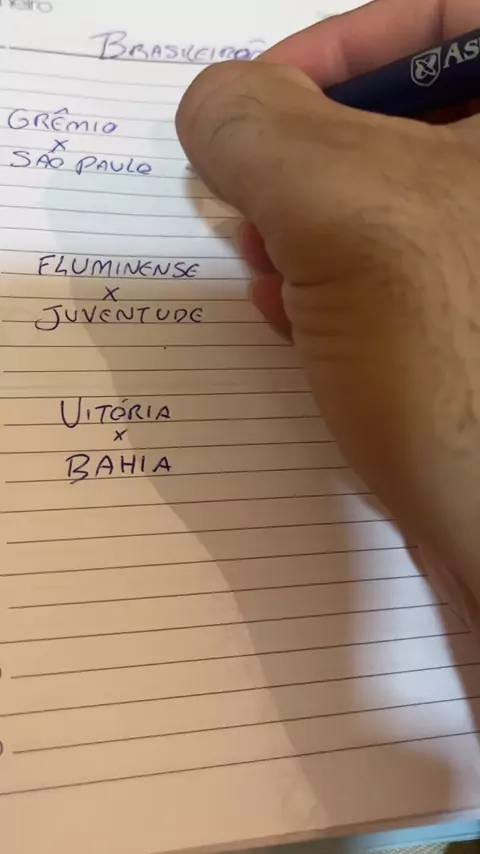 BRASILEIRÃO
GRÊMIO
X
SÃO PAULO
FLUMINENSE
X
JUVENTUDE
VITÓRIA
X
BAHIA